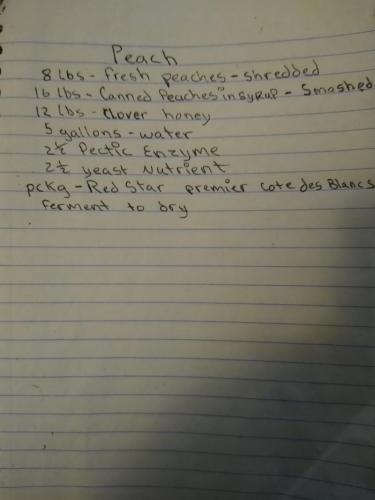 Peach
8 lbs - fresh peaches - shredded
16 lbs - Canned Peaches in syrup - Smashed
12 lbs - Clover honey
5 gallons - water
2½ Pectic Enzyme
2½ yeast Nutrient
pckg - Red Star premier cote des Blancs
Ferment to Dry